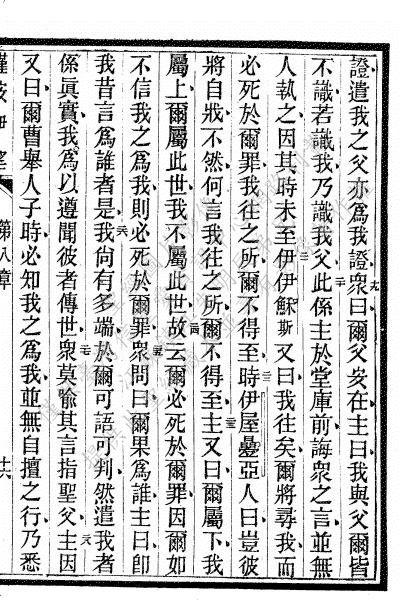 證遣我之父亦爲我證衆曰爾父安在主曰我與父爾皆
不識若識我乃識我父此係主於堂庫前誨衆之言並無
人執之因其時未至伊伊穌斯又曰我徃矣爾將尋我而
必死於爾罪我徃之所爾不得至時伊屋疊亞人曰豈彼
將自戕不然何言我徃之所爾不得至主又曰爾屬下我
屬上爾屬此世我不屬此世故云爾必死於爾罪因爾如
不信我之爲我則必死於爾罪衆問曰爾果爲誰主曰卽
我昔言爲誰者是我尙有多端於爾可語可判然遣我者
係眞實我爲以遵聞彼者傳世衆莫喻其言指聖父主因
又曰爾曹舉人子時必知我之爲我並無自擅之行乃悉
第八章